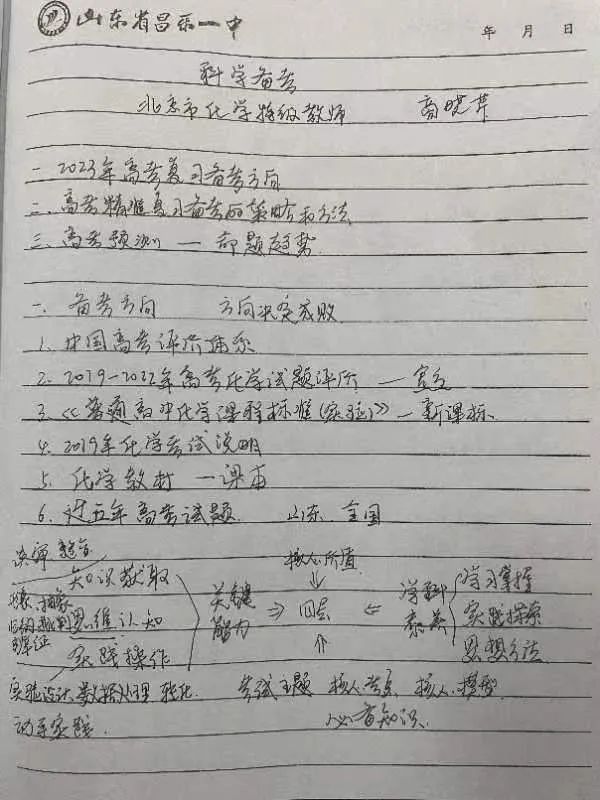 山东省昌乐一中
年 月 日
科学备考
北京市化学特级教师 高晓芹
一 2023年高考复习备考方向
二、高考精准复习备考的策略和方法
三、高考预测 — 命题趋势
一、备考方向 方向决定成败
1. 中国高考评价体系
2. 2019-2022年高考化学试题评价 —
3 《普通高中化学课程标准(实验)》—新课标
4. 2019年化学考试说明
5. 化学教材 — 课本
6. 近五年高考试题 山东、全国
整合 核心价值
知识获取 学习掌握
思维认知 关键能力 ⇒ ⇐ 学科素养 实践探索
实践操作 思想方法
实验设计 数据处理 转化 考试主题 核心考点 核心 模型
动手实践 必备知识